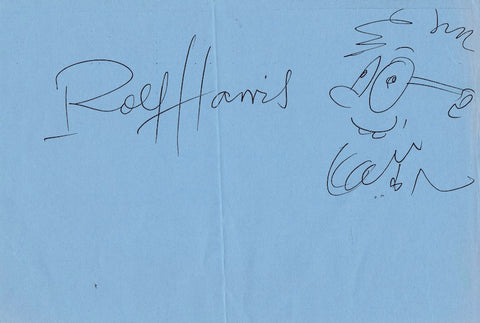 Rolf Harris